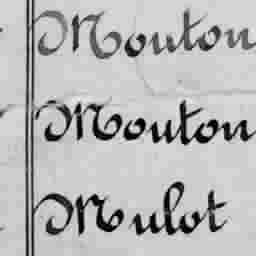 Mouton
Mouton
Mulot